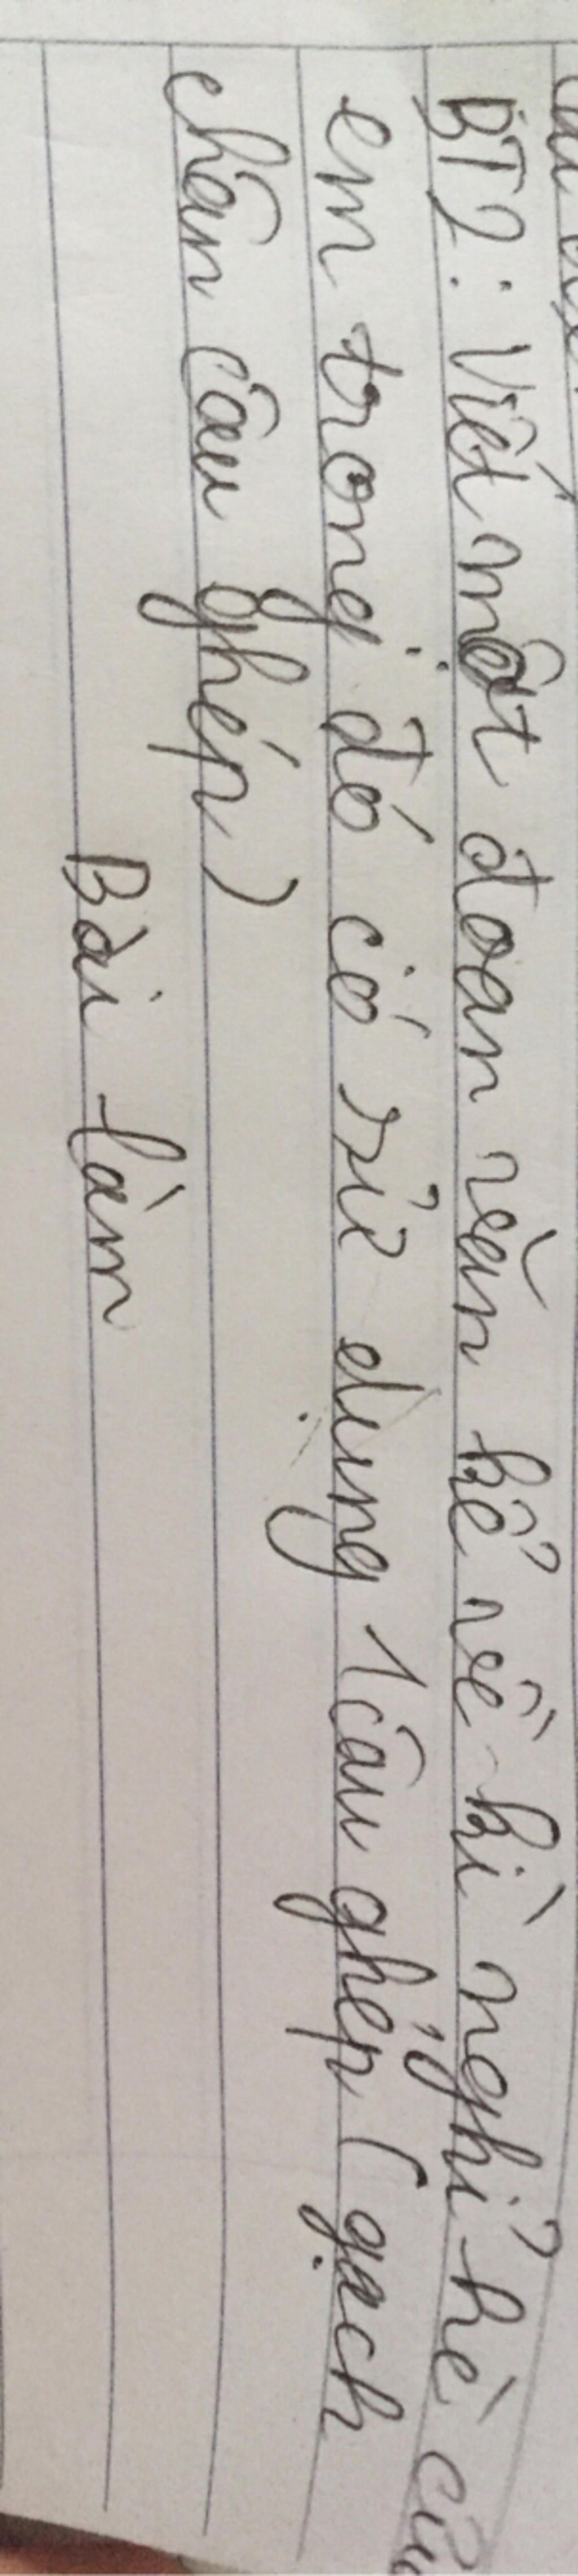 BT2: Viết một đoạn văn kể về kì nghỉ hè của
em trong đó có sử dụng 1 câu ghép (gạch
chân câu ghép)
Bài làm